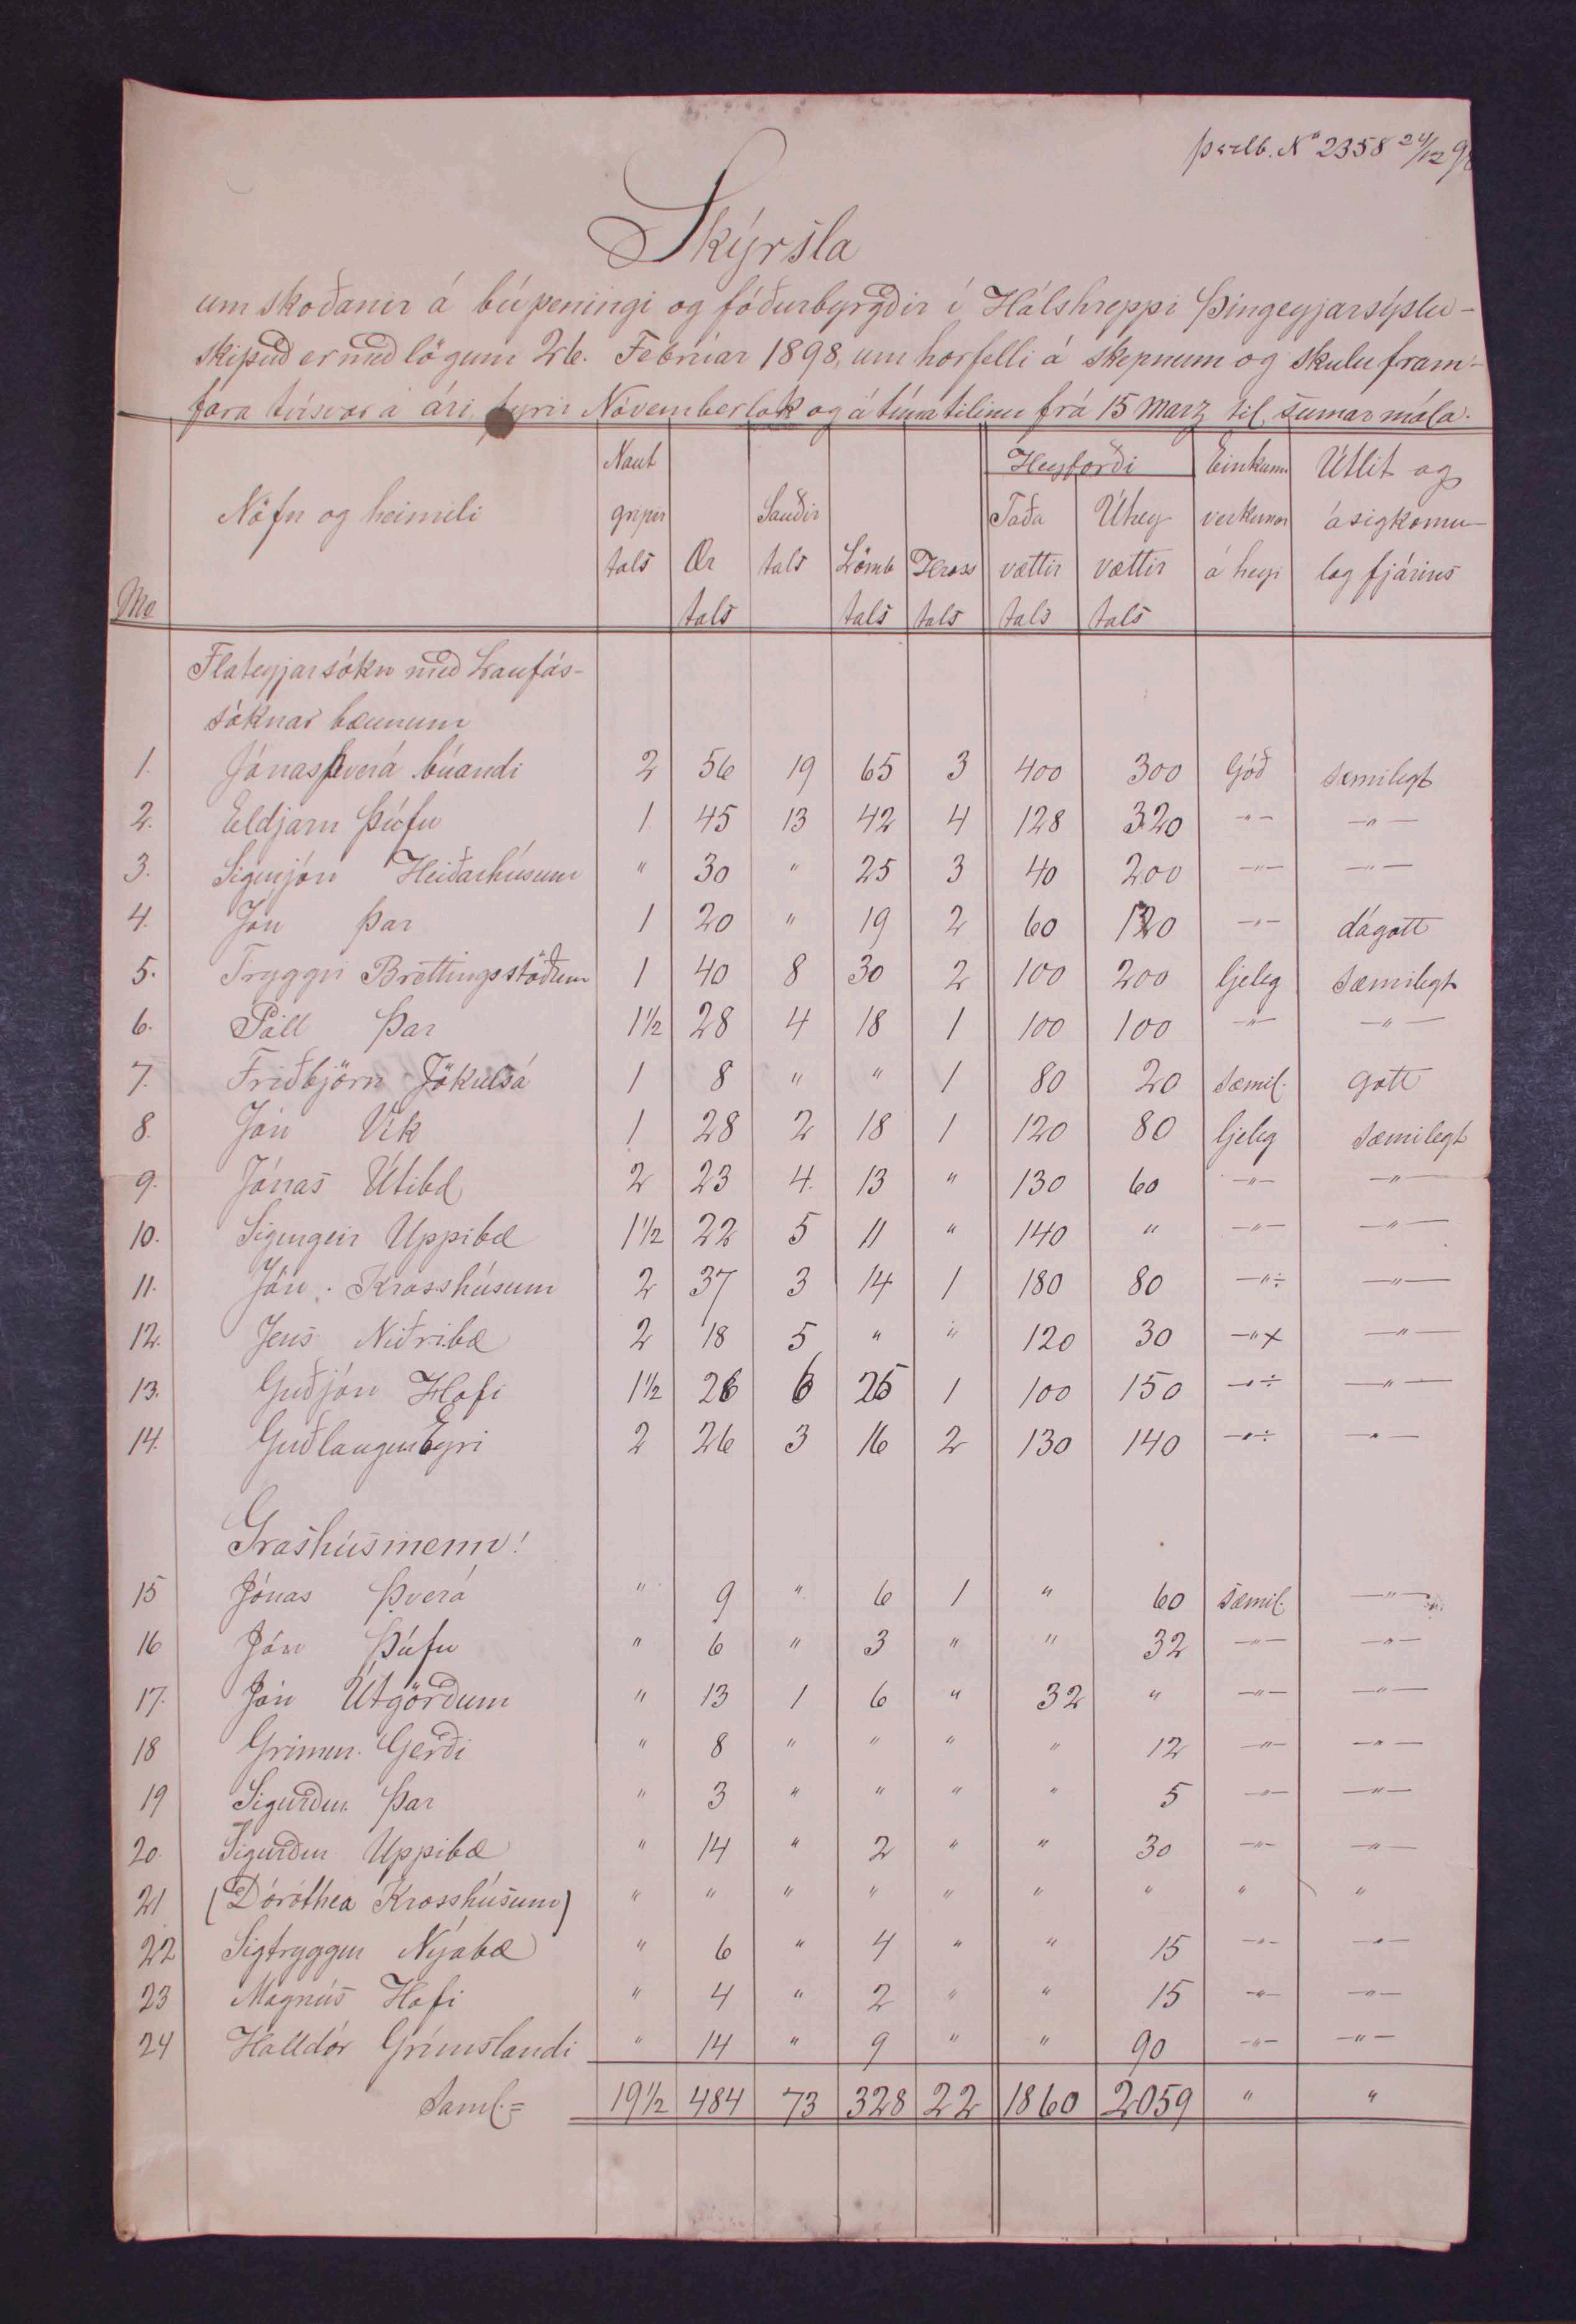 þsslb. No 2358 24/12 98
Skýrsla
um skoðanir á búpeningi og fóðurbyrgðir í Hálshreppi Þingeyjarsýslu -
skipuð er með lögum 26. Febrúar 1898, um horfelli á skepnum og skulu fram-
fara tvisvar á ári fyrir Nóvemberlok og á tímatilinu frá 15 Marz til sumarmála.
No Nöfn og heimili Nautgripir tals Ær tals Sauðir tals Lömb tals Hross tals Heyforði Taða vættir tals Úthey vættir tals Einkunn verkunar á heyi Útlit og ásigkomulag fjárins
Flateyjarsókn með Laufás-
sóknar bæunum
1. Jónas Þverá búandi 2 56 19 65 3 400 300 Góð sæmilegt
2. Eldjarn Þúfu 1 45 13 42 4 128 320 -"- -"-
3. Sigurjón Heiðarhúsum " 30 " 25 3 40 200 -"- -"-
4. Jón Þar 1 20 " 19 2 60 120 -"- dágott
5. Tryggvi Brettingsstöðum 1 40 8 30 2 100 200 ljeleg sæmilegt
6. Páll Þar 1½ 28 4 18 1 100 100 -"- -"-
7. Friðbjörn Jökulsá 1 8 " " 1 80 20 sæmil. gott
8. Jón Vík 1 28 2 18 1 120 80 ljeleg sæmilegt
9. Jónas Útibæ 2 23 4. 13 " 130 60 -"- -"-
10. Sigurgeir Uppibæ 1½ 22 5 11 " 140 " -"- -"-
11. Jón . Krosshúsum 2 37 3 14 1 180 80 -"÷ -"-
12. Jens Niðribæ 2 18 5 " " 120 30 -"+ -"-
13. Guðjón Hofi 1½ 26 6 25 1 100 150 -"÷ -"-
14. Guðlaugur Eyri 2 26 3 16 2 130 140 -"÷ -"-
Grashúsmenn!
15 Jónas Þverá " 9 " 6 1 " 60 sæmil. -"-
16 Jón Þúfu " 6 " 3 " " 32 -"- -"-
17. Jón Útgörðum " 13 1 6 " 32 " -"- -"-
18 Grímur Gerði " 8 " " " " 12 -"- -"-
19 Sigurður Þar " 3 " " " " 5 -"- -"-
20. Sigurður Uppibæ " 14 " 2 " " 30 -"- -"-
21 (Dóróthea Krosshúsum) " " " " " " " " "
22 Sigtryggur Nýabæ " 6 " 4 " " 15 -"- -"-
23 Magnús Hofi " 4 " 2 " " 15 -"- -"-
24 Halldór Grímslandi " 14 " 9 " " 90 -"- -"-
Saml.= 19½ 484 73 328 22 1860 2059 " "